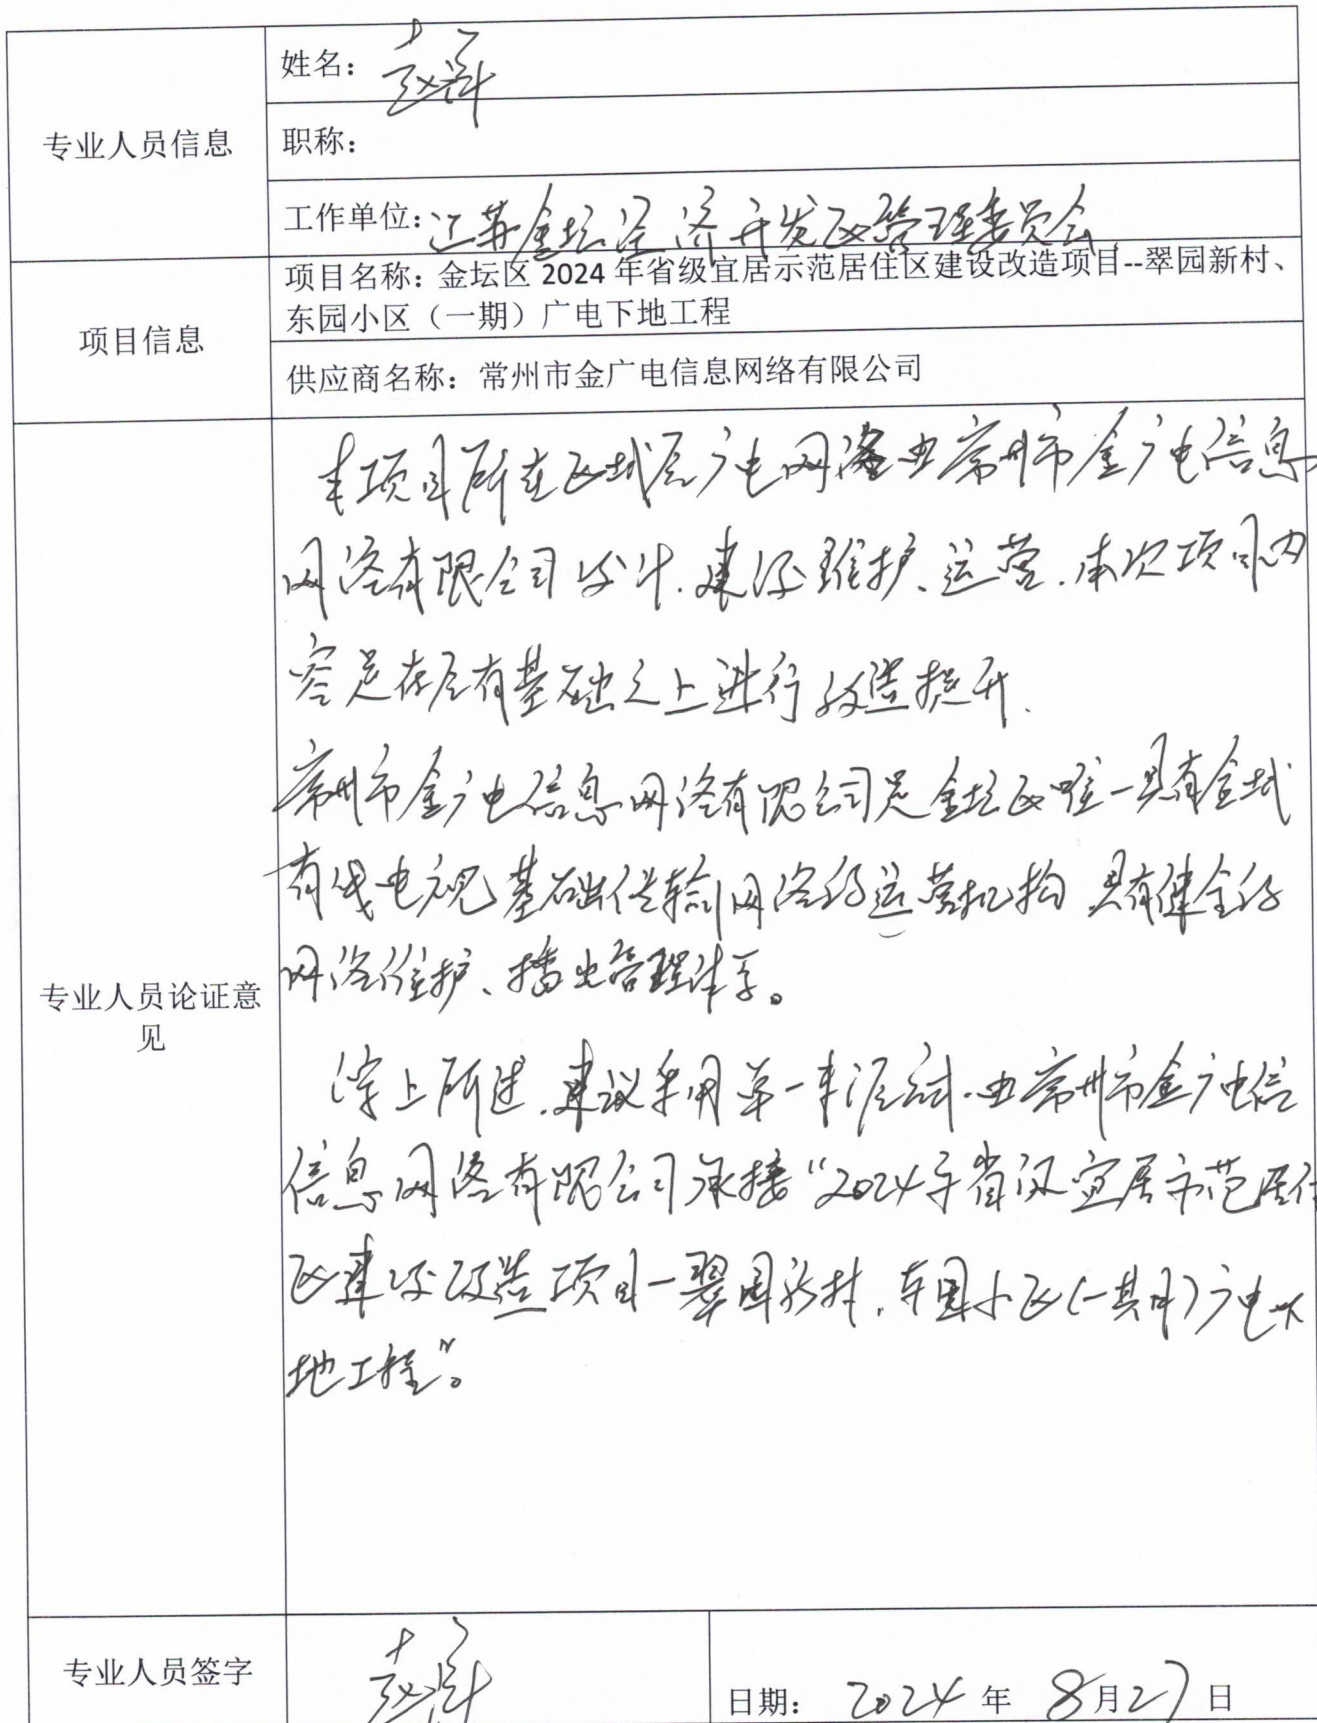 专业人员信息
姓名：
职称：
工作单位：江苏金坛经济开发区管理委员会
项目信息
项目名称：金坛区 2024 年省级宜居示范居住区建设改造项目--翠园新村、
东园小区（一期）广电下地工程
供应商名称：常州市金广电信息网络有限公司
专业人员论证意
见
本项目所在区域原广电网络由常州市金广电信息
网络有限公司设计、建设、维护、运营.本次项目内
容是在原有基础之上进行改造提升.
常州市金广电信息网络有限公司是金坛区唯一具有全域
有线电视基础传输网络的运营机构 具有健全的
网络维护、播出管理体系。
综上所述.建议采用单一来源.由常州市金广电信
信息网络有限公司承接“2024年省级宜居示范居住
区建设改造项目一翠园新村、东园小区(一期)广电下
地工程”。
专业人员签字
日期： 2024 年 8月27日